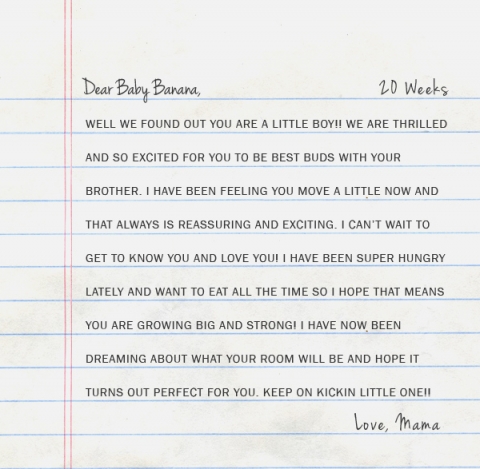 Dear Baby Banana, 20 Weeks
WELL WE FOUND OUT YOU ARE A LITTLE BOY!! WE ARE THRILLED
AND SO EXCITED FOR YOU TO BE BEST BUDS WITH YOUR
BROTHER. I HAVE BEEN FEELING YOU MOVE A LITTLE NOW AND
THAT ALWAYS IS REASSURING AND EXCITING. I CAN'T WAIT TO
GET TO KNOW YOU AND LOVE YOU! I HAVE BEEN SUPER HUNGRY
LATELY AND WANT TO EAT ALL THE TIME SO I HOPE THAT MEANS
YOU ARE GROWING BIG AND STRONG! I HAVE NOW BEEN
DREAMING ABOUT WHAT YOUR ROOM WILL BE AND HOPE IT
TURNS OUT PERFECT FOR YOU. KEEP ON KICKIN LITTLE ONE!!
Love, Mama